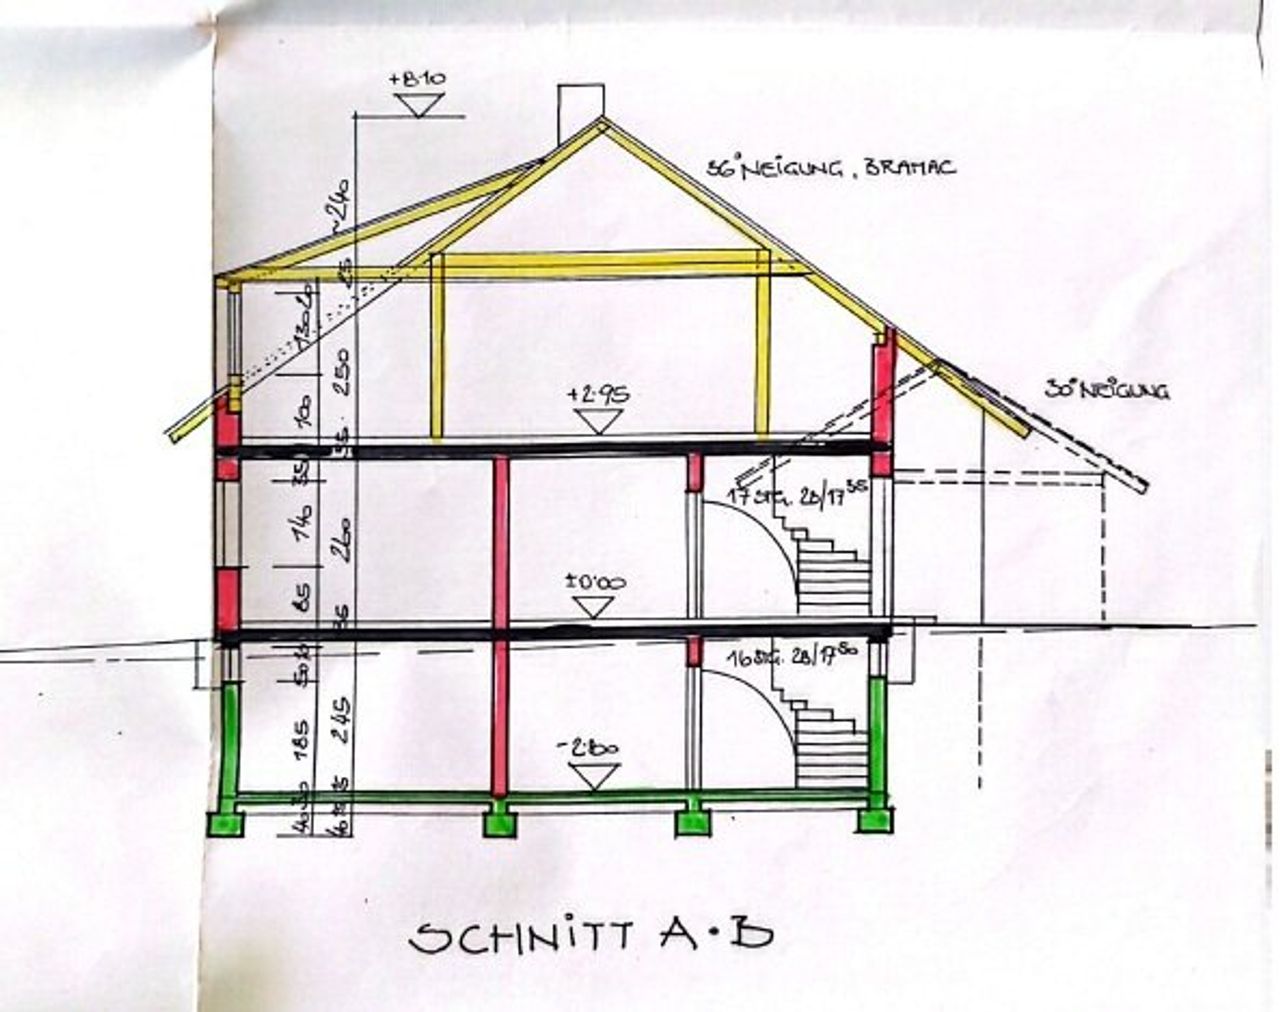 +8·10
36° NEIGUNG, BRAMAC
~240
25
20
130
250
30° NEIGUNG
+2·95
100
35
35
17 STG. 28/17³⁵
140
260
±0·00
85
35
16 STG. 28/17⁵⁰
50
245
185
-2·80
30
15
40
40
SCHNITT A·B